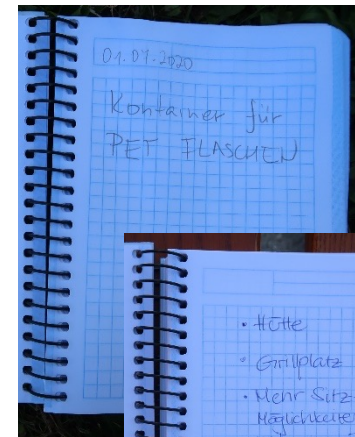 01.07.2020
Kontainer für
PET FLASCHEN
• Hütte
• Grillplatz
• Mehr Sitz-
Möglichkeite